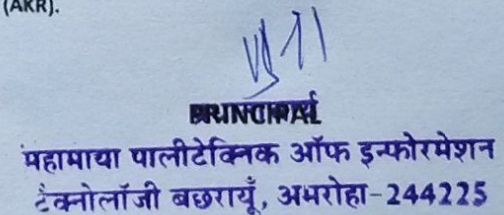 (AKR).
PRINCIPAL
महामाया पालीटेक्निक ऑफ इन्फोरमेशन
टैक्नोलॉजी बछरायूँ, अमरोहा-244225